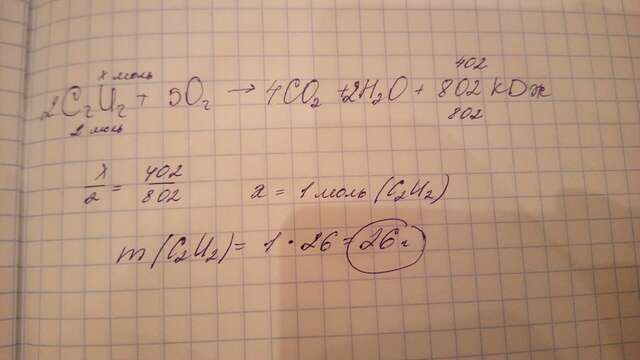 x моль 402
2C₂H₂ + 5O₂ → 4CO₂ + 2H₂O + 802 кДж
2 моль 802
x/2 = 402/802 x = 1 моль (C₂H₂)
m (C₂H₂) = 1 · 26 = 26 г